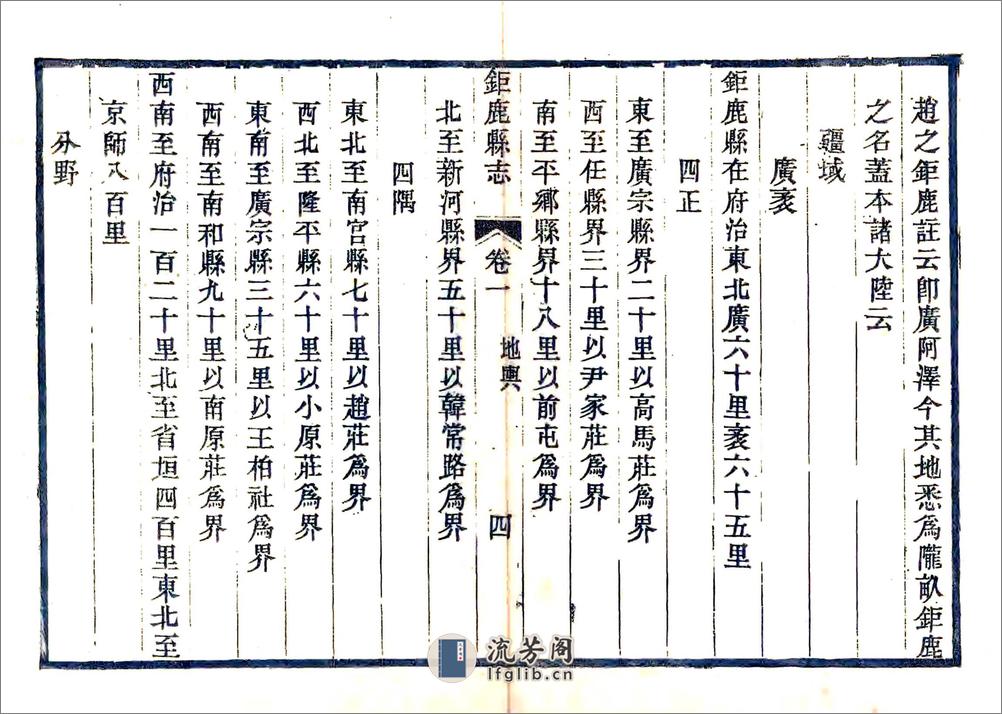 趙之鉅鹿註云卽廣阿澤今其地悉爲隴畝鉅鹿
之名蓋本諸大陸云
疆域
廣袤
鉅鹿縣在府治東北廣六十里袤六十五里
四正
東至廣宗縣界二十里以高馬莊爲界
西至任縣界三十里以尹家莊爲界
南至平鄉縣界十八里以前屯爲界
鉅鹿縣志 卷一 地輿 四
北至新河縣界五十里以韓常路爲界
四隅
東北至南宮縣七十里以趙莊爲界
西北至隆平縣六十里以小原莊爲界
東南至廣宗縣三十五里以王柏社爲界
西南至南和縣九十里以南原莊爲界
西南至府治一百二十里北至省垣四百里東北至
京師八百里
分野
流芳阁
lfglib.cn